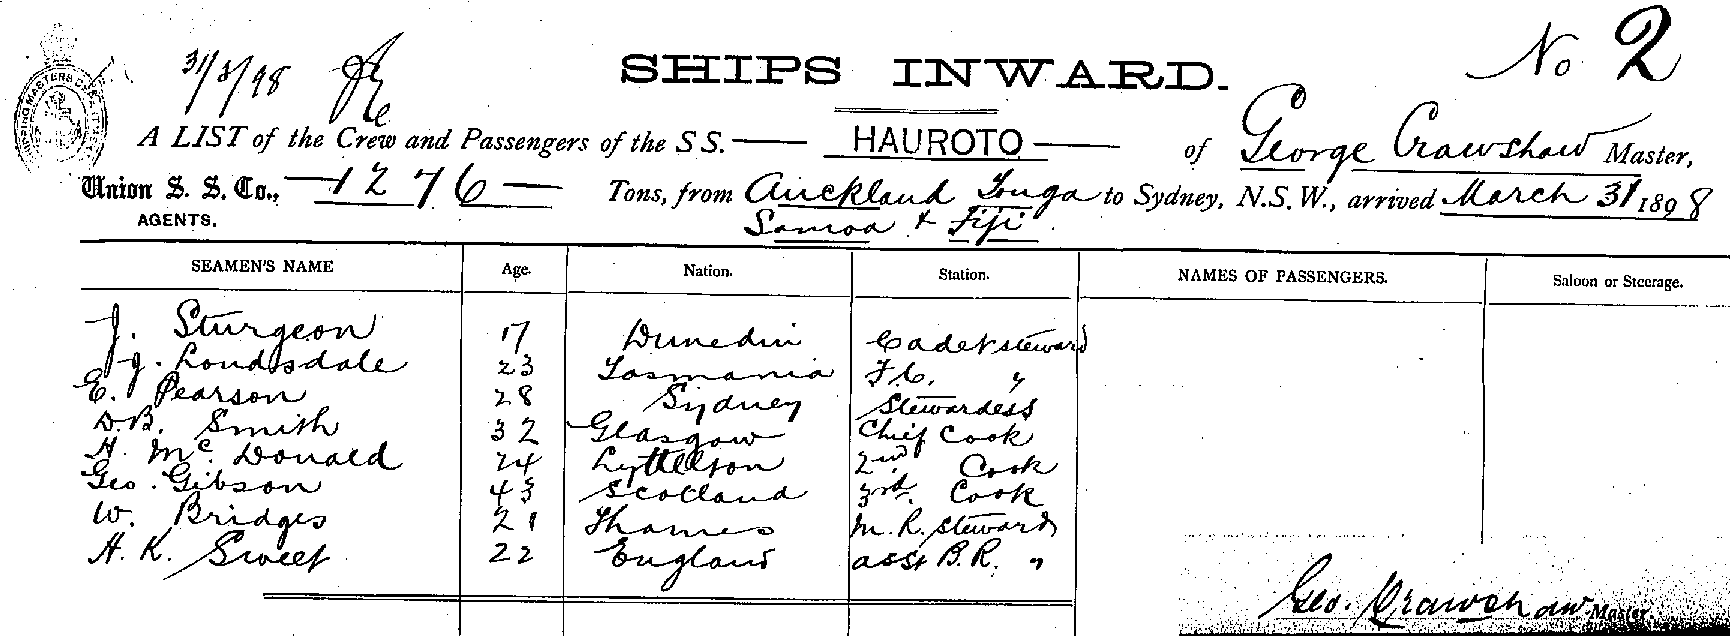 31/3/98 No 2
SHIPS INWARD.
A LIST of the Crew and Passengers of the S S. HAUROTO of George Crawshaw Master,
Union S. S. Co., 1276 Tons, from Auckland Tonga to Sydney, N.S.W., arrived March 31 1898
AGENTS. Samoa & Fiji
SEAMEN'S NAME Age. Nation. Station. NAMES OF PASSENGERS. Saloon or Steerage.
J. Sturgeon 17 Dunedin Cadet steward
J. Loundsdale 23 Tasmania F.C. "
E. Pearson 28 Sydney Stewardess
D.B. Smith 32 Glasgow Chief Cook
H. McDonald 24 Lyttelton 2nd Cook
Geo. Gibson 43 Scotland 3rd. Cook
W. Bridges 21 Thames M.R. Steward
H. K. Sweet 22 England asst B.R. "
Geo. Crawshaw Master.